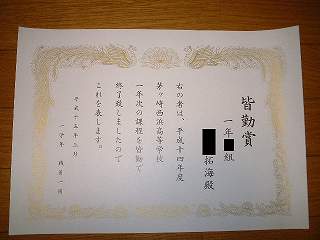 皆勤賞
一年 組
拓海殿
右の者は、平成十四年度
茅ヶ崎西浜高等学校
一年次の課程を皆勤で
終了致しましたので
これを表します。
平成十五年三月
一学年